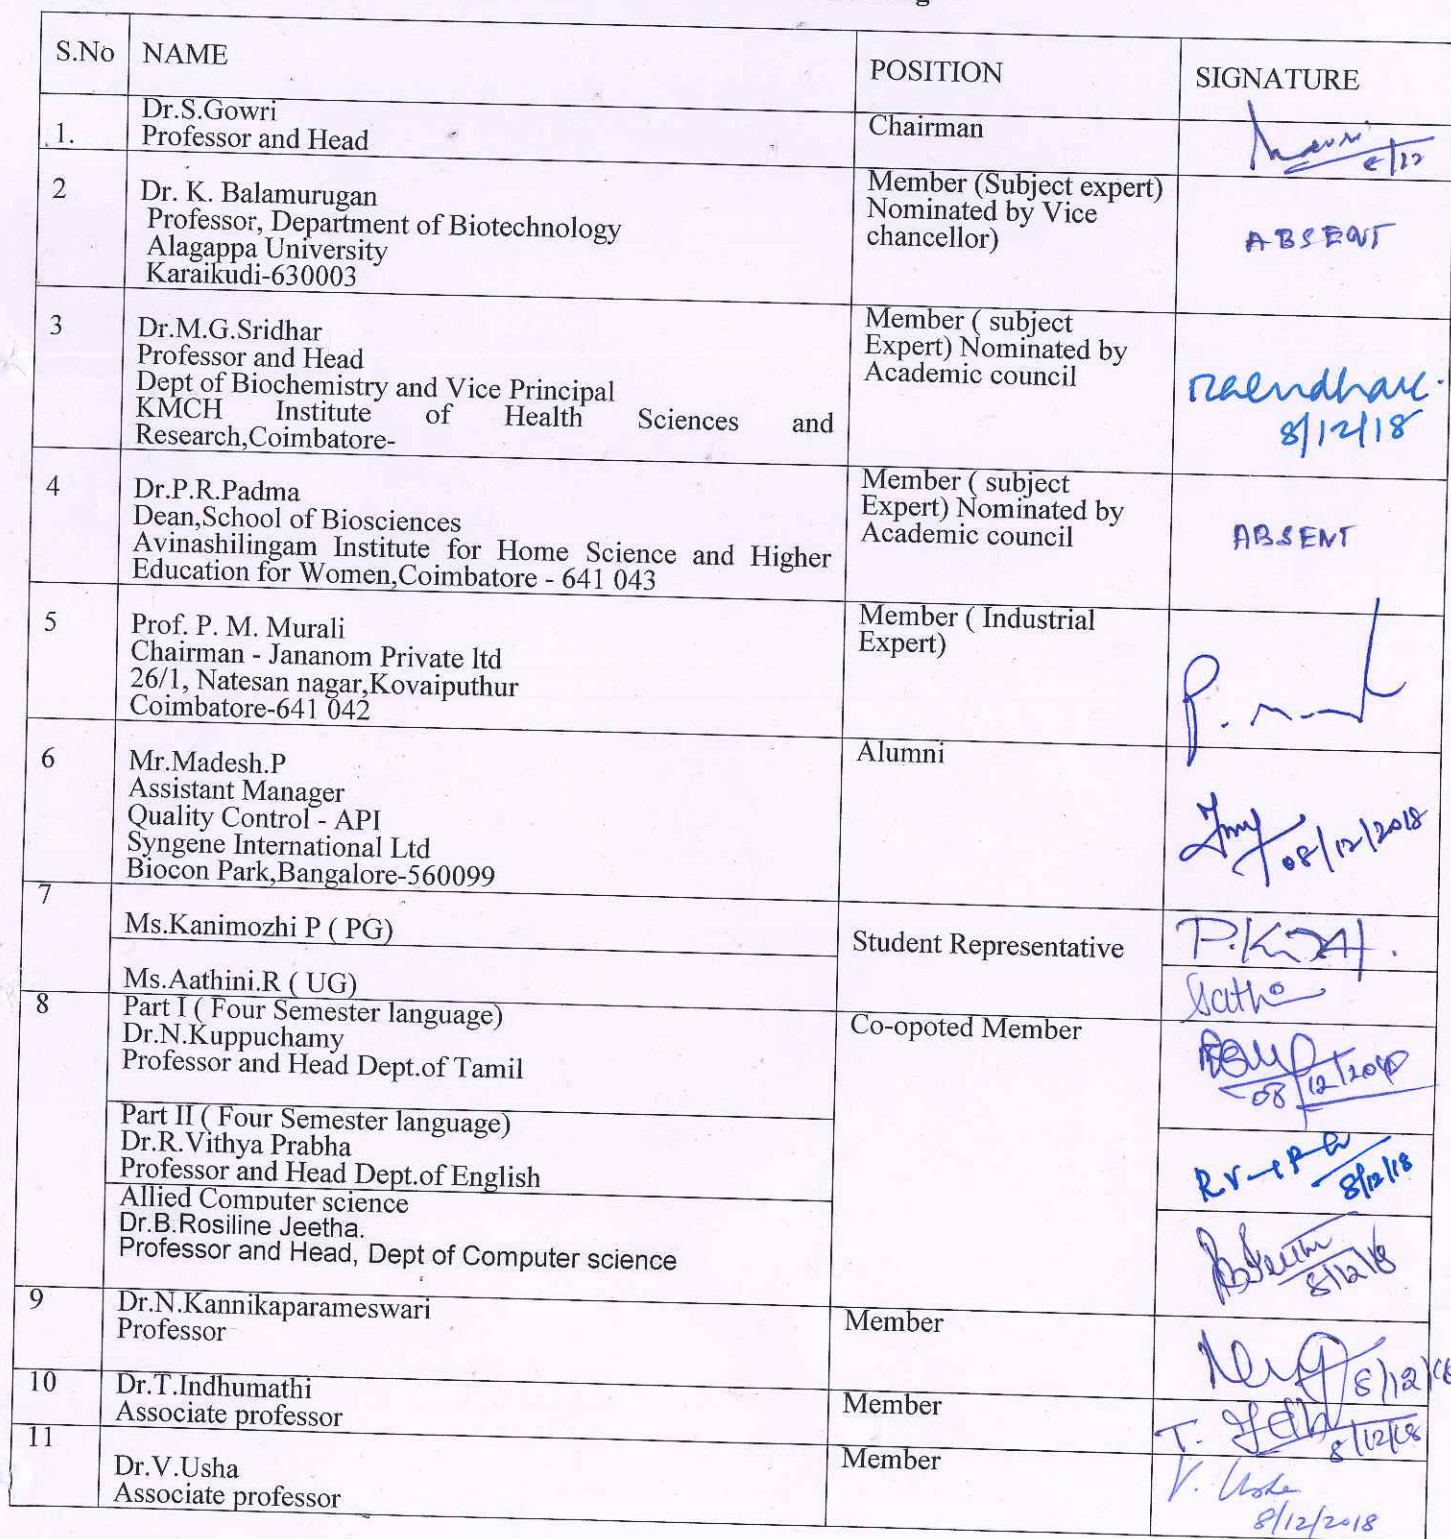 S.No NAME POSITION SIGNATURE
1.
Dr.S.Gowri
Professor and Head
Chairman
2
Dr. K. Balamurugan
Professor, Department of Biotechnology
Alagappa University
Karaikudi-630003
Member (Subject expert)
Nominated by Vice
chancellor)
ABSENT
3
Dr.M.G.Sridhar
Professor and Head
Dept of Biochemistry and Vice Principal
KMCH Institute of Health Sciences and
Research,Coimbatore-
Member ( subject
Expert) Nominated by
Academic council
8/12/18
4
Dr.P.R.Padma
Dean,School of Biosciences
Avinashilingam Institute for Home Science and Higher
Education for Women,Coimbatore - 641 043
Member ( subject
Expert) Nominated by
Academic council
ABSENT
5
Prof. P. M. Murali
Chairman - Jananom Private ltd
26/1, Natesan nagar,Kovaiputhur
Coimbatore-641 042
Member ( Industrial
Expert)
6
Mr.Madesh.P
Assistant Manager
Quality Control - API
Syngene International Ltd
Biocon Park,Bangalore-560099
Alumni
08/12/2018
7
Ms.Kanimozhi P ( PG)
Ms.Aathini.R ( UG)
Student Representative
8
Part I ( Four Semester language)
Dr.N.Kuppuchamy
Professor and Head Dept.of Tamil
Co-opoted Member
Part II ( Four Semester language)
Dr.R.Vithya Prabha
Professor and Head Dept.of English
8/12/18
Allied Computer science
Dr.B.Rosiline Jeetha.
Professor and Head, Dept of Computer science
8/12/18
9
Dr.N.Kannikaparameswari
Professor
Member
8/12/18
10
Dr.T.Indhumathi
Associate professor
Member
8/12/18
11
Dr.V.Usha
Associate professor
Member
V. Usha
8/12/2018